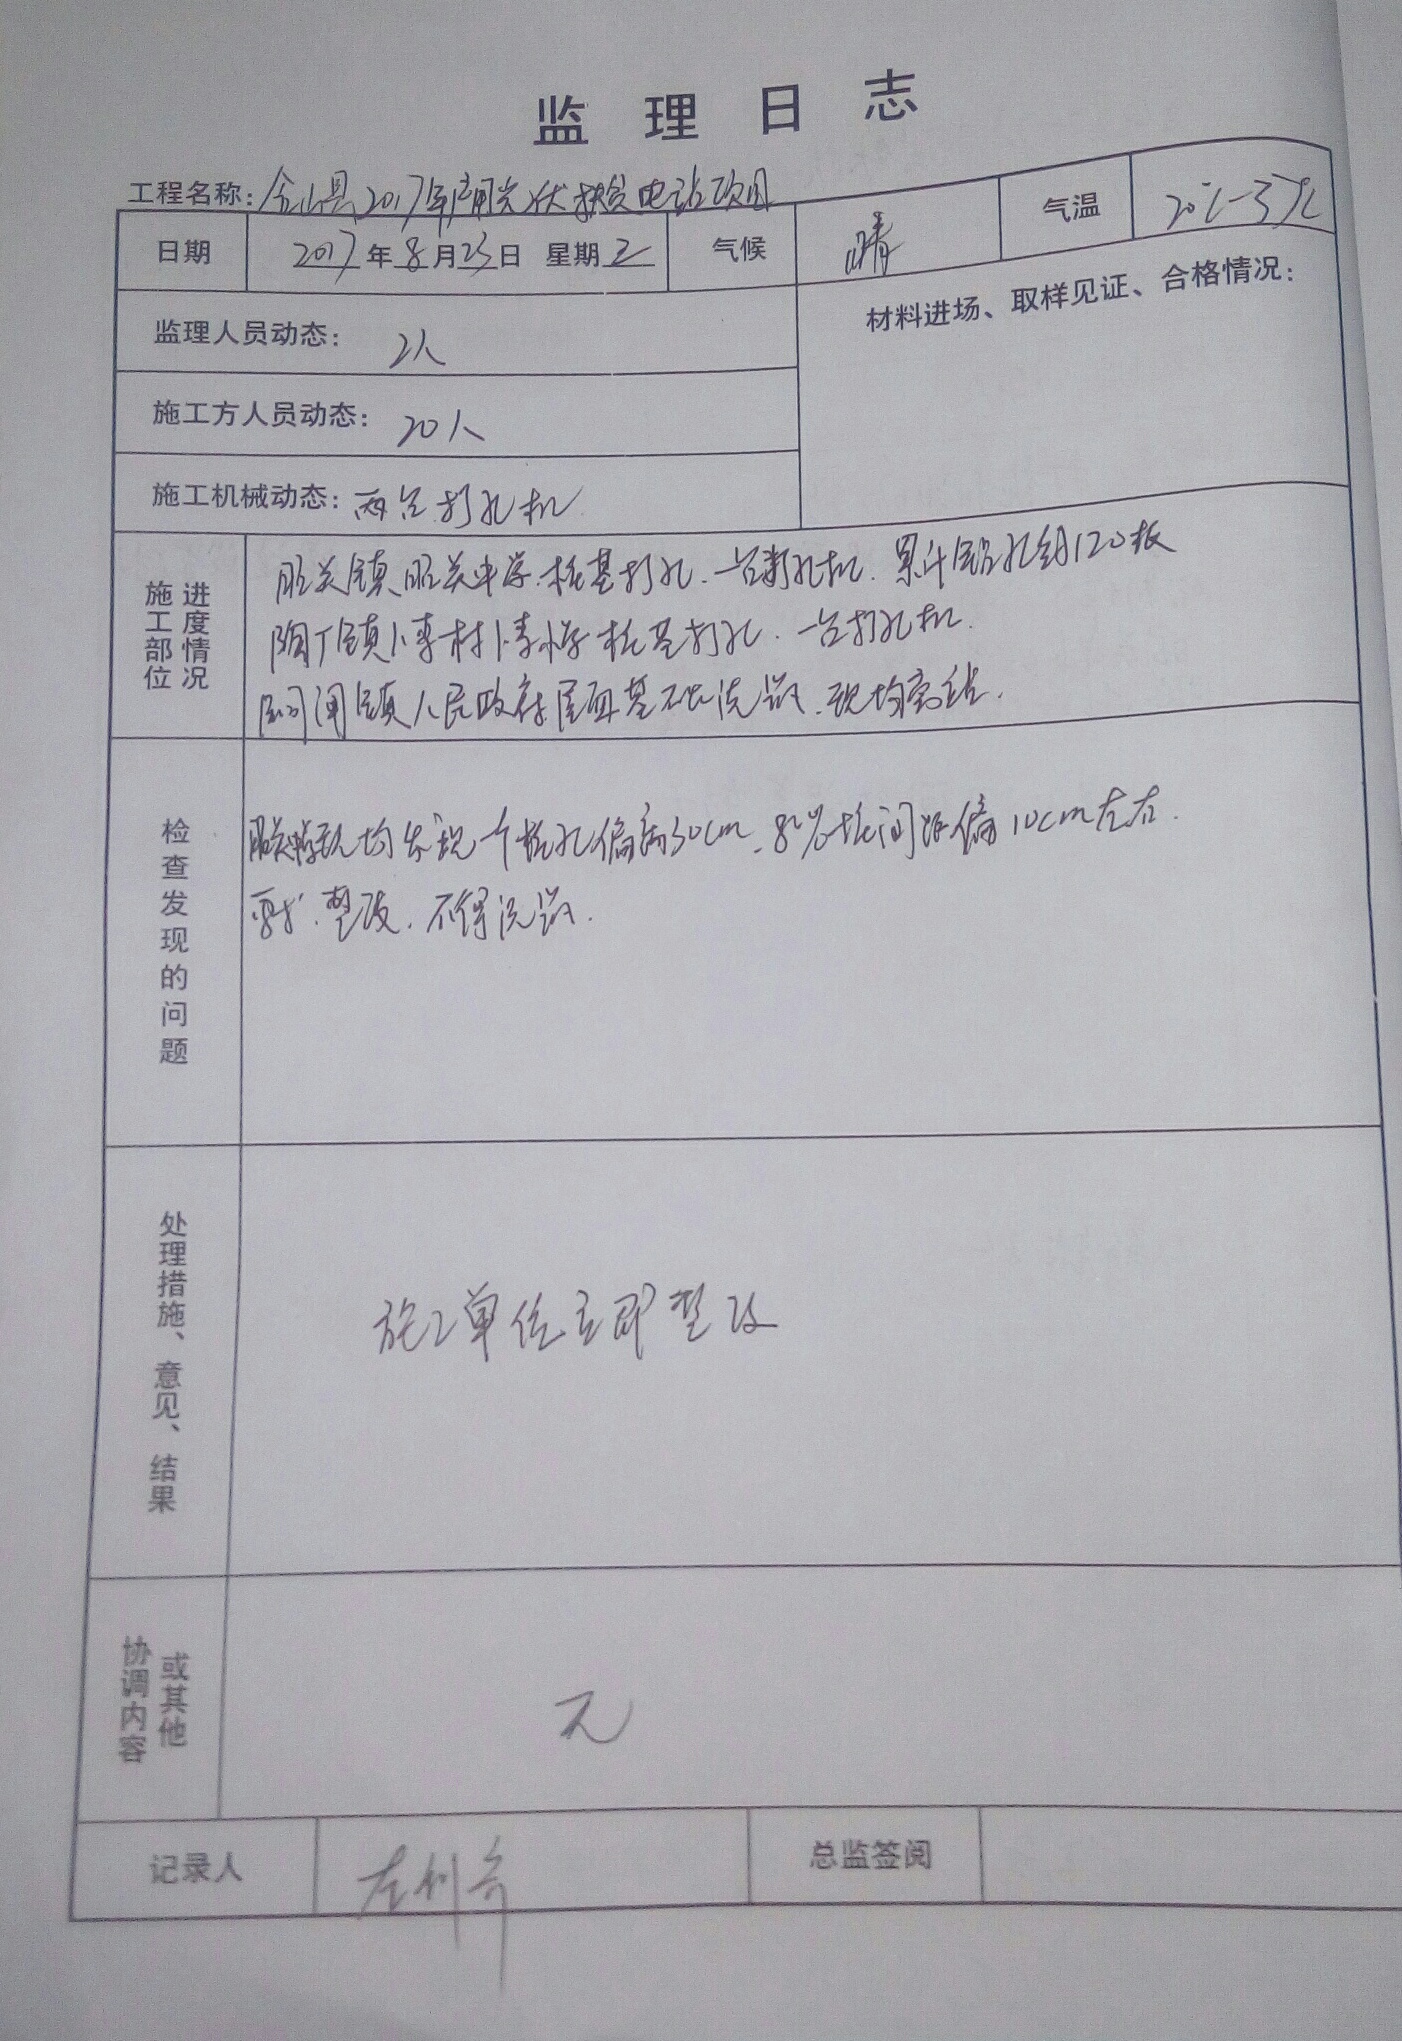 监理日志
工程名称: 含山县2017年户用光伏扶贫电站项目
日期 2017年8月23日 星期三 气候 晴 气温 20℃-37℃
监理人员动态: 2人
材料进场、取样见证、合格情况:
施工方人员动态: 20人
施工机械动态: 两台打孔机
施工部位 进度情况
昭关镇昭关中学桩基打孔.一台打孔机.累计钻孔约120根
陶厂镇 桩基打孔.一台打孔机.
镇人民政府屋面基础浇筑.现均完结.
检查发现的问题
一个桩孔偏离30cm. 桩间距偏10cm左右.
要求整改.不得浇筑.
处理措施、意见、结果
施工单位立即整改
协调内容 或其他
无
记录人 总监签阅